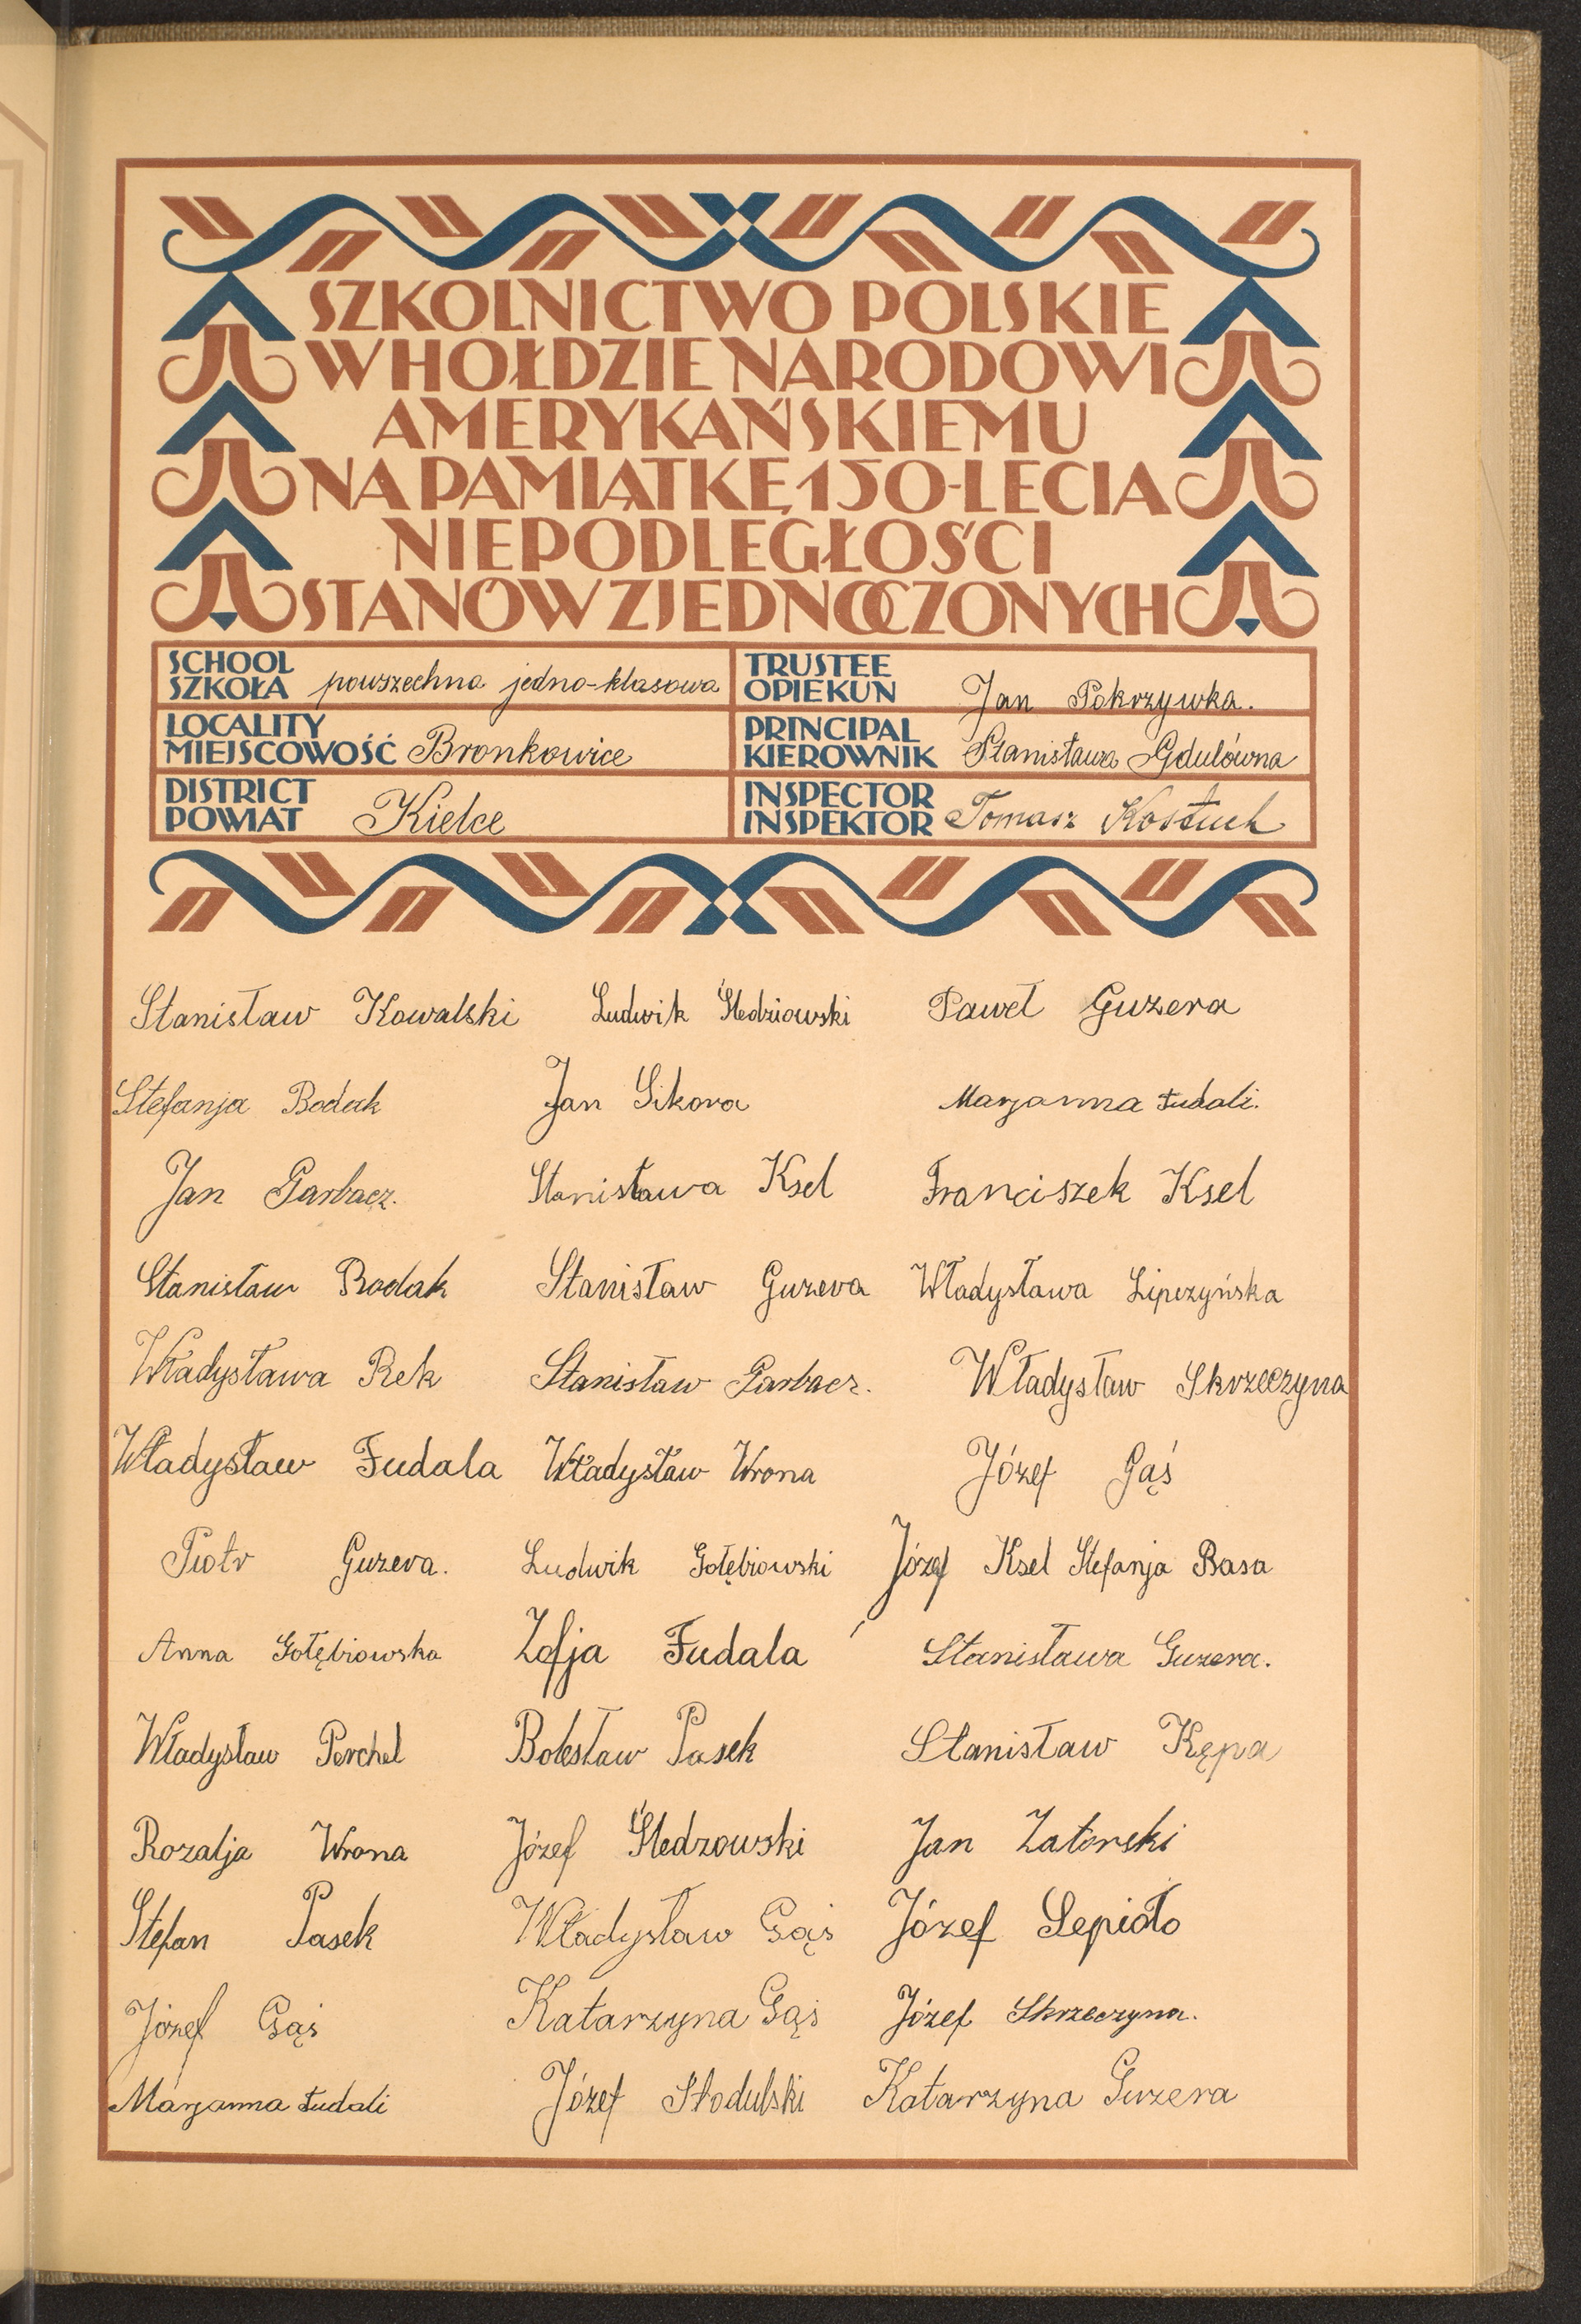 SZKOLNICTWO POLSKIE
W HOŁDZIE NARODOWI
AMERYKAŃSKIEMU
NA PAMIĄTKĘ 150-LECIA
NIEPODLEGŁOŚCI
STANÓW ZJEDNOCZONYCH
SCHOOL
SZKOŁA powszechna jedno-klasowa
TRUSTEE
OPIEKUN Jan Pokrzywka.
LOCALITY
MIEJSCOWOŚĆ Bronkowice
PRINCIPAL
KIEROWNIK Stanisława Gdulówna
DISTRICT
POWIAT Kielce
INSPECTOR
INSPEKTOR Tomasz Kostuch
Stanisław Kowalski Ludwik Śledziowski Paweł Guzera
Stefanja Bodak Jan Sikora Marjanna Fudali.
Jan Garbacz. Stanisława Ksel Franciszek Ksel
Stanisław Bodak Stanisław Guzera Władysława Lipczyńska
Władysława Rek Stanisław Garbacz. Władysław Skrzeczyna
Władysław Fudala Władysław Wrona Józef Gąś
Piotr Guzera. Ludwik Gołębiowski Józef Ksel Stefanja Basa
Anna Gołębiowska Zofja Fudala Stanisława Guzera.
Władysław Perchel Bolesław Pasek Stanisław Kępa
Rozalja Wrona Józef Śledzowski Jan Zatorski
Stefan Pasek Władysław Gąś Józef Sepioło
Józef Gąś Katarzyna Gąś Józef Skrzeczyna.
Marjanna Fudali Józef Słodulski Katarzyna Guzera